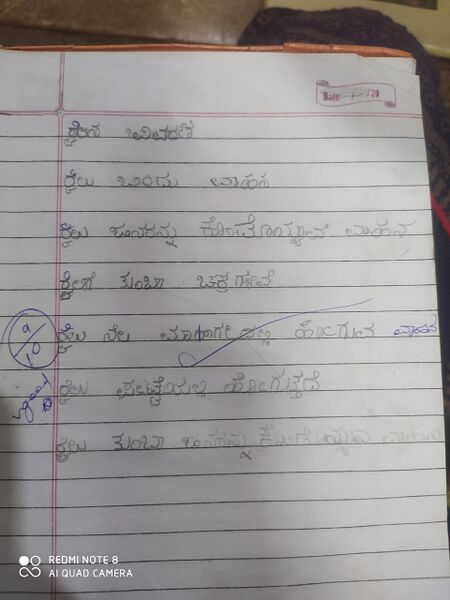 Date / /20
ರೈಲಿನ ವಿವರಣೆ
ರೈಲು ಒಂದು ವಾಹನ
ರೈಲು ಜನರನ್ನು ಕೊಂಡೊಯ್ಯುವ ವಾಹನ
ರೈಲಿಗೆ ತುಂಬಾ ಚಕ್ರಗಳಿವೆ
9/10
ರೈಲು ನೆಲ ಹೋಗುವ ವಾಹನ
good
ರೈಲು ಹೋಗುತ್ತದೆ
ರೈಲು ತುಂಬಾ ಜನರನ್ನು ಕೊಂಡೊಯ್ಯುವ ವಾಹನ
REDMI NOTE 8
AI QUAD CAMERA